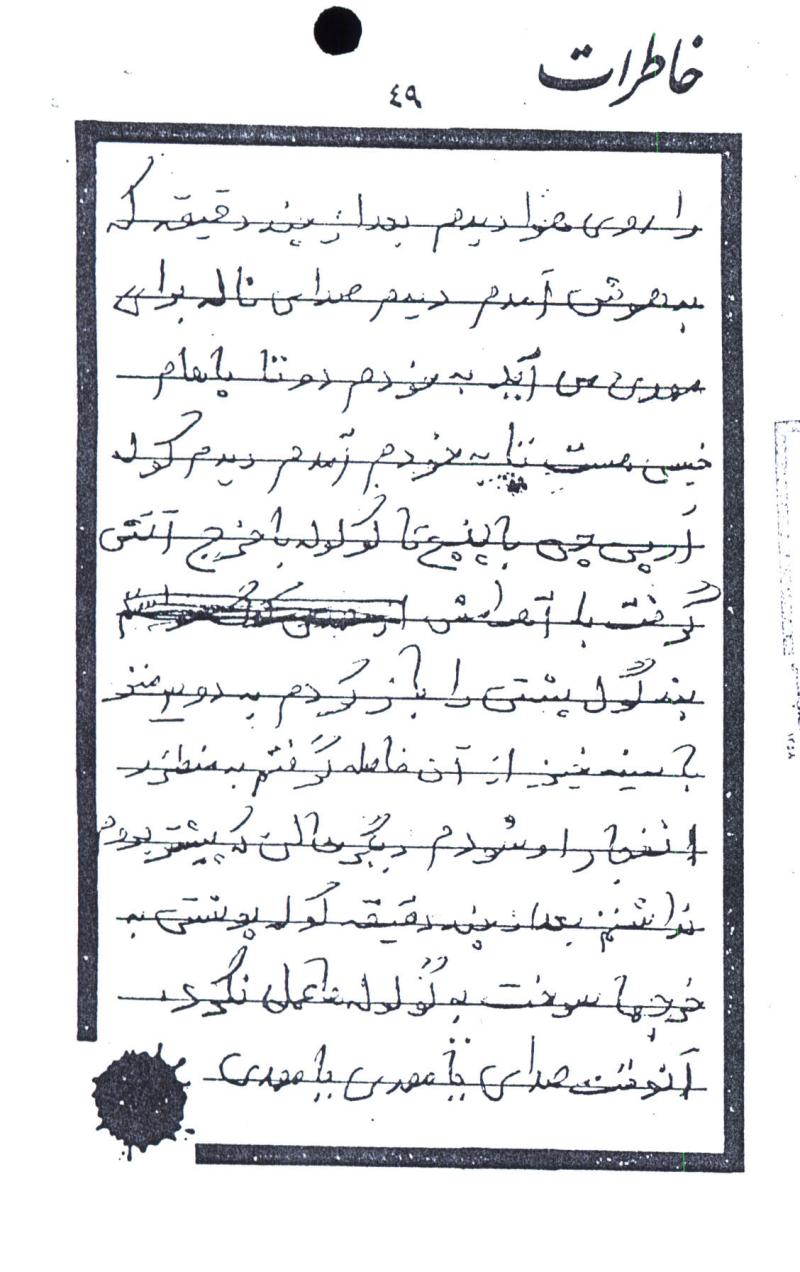 خاطرات
٤٩
را روی هوا دیدم بعد از چند دقیقه که
به هوش آمدم دیدم صدای ناله برای
مهدی می آید به خودم دو تا پاهام
خیس هست تا به خودم آمدم دیدم کوله
آرپی جی با پنج تا گولوله با خرج آتش
گرفت با آتهامش
بند کول پشتی را باز کردم به دو
با سینه خیز از آن فاصله گرفتم به منظر
انفجار او شودم دیگر حالی که پیشتر بودم
نداشتم بعد از چند دقیقه کوله پوشتی به
خرجها سوخت به گولوله ها عملی نکرد
آنوقت صدای یا مهدی یا مهدی